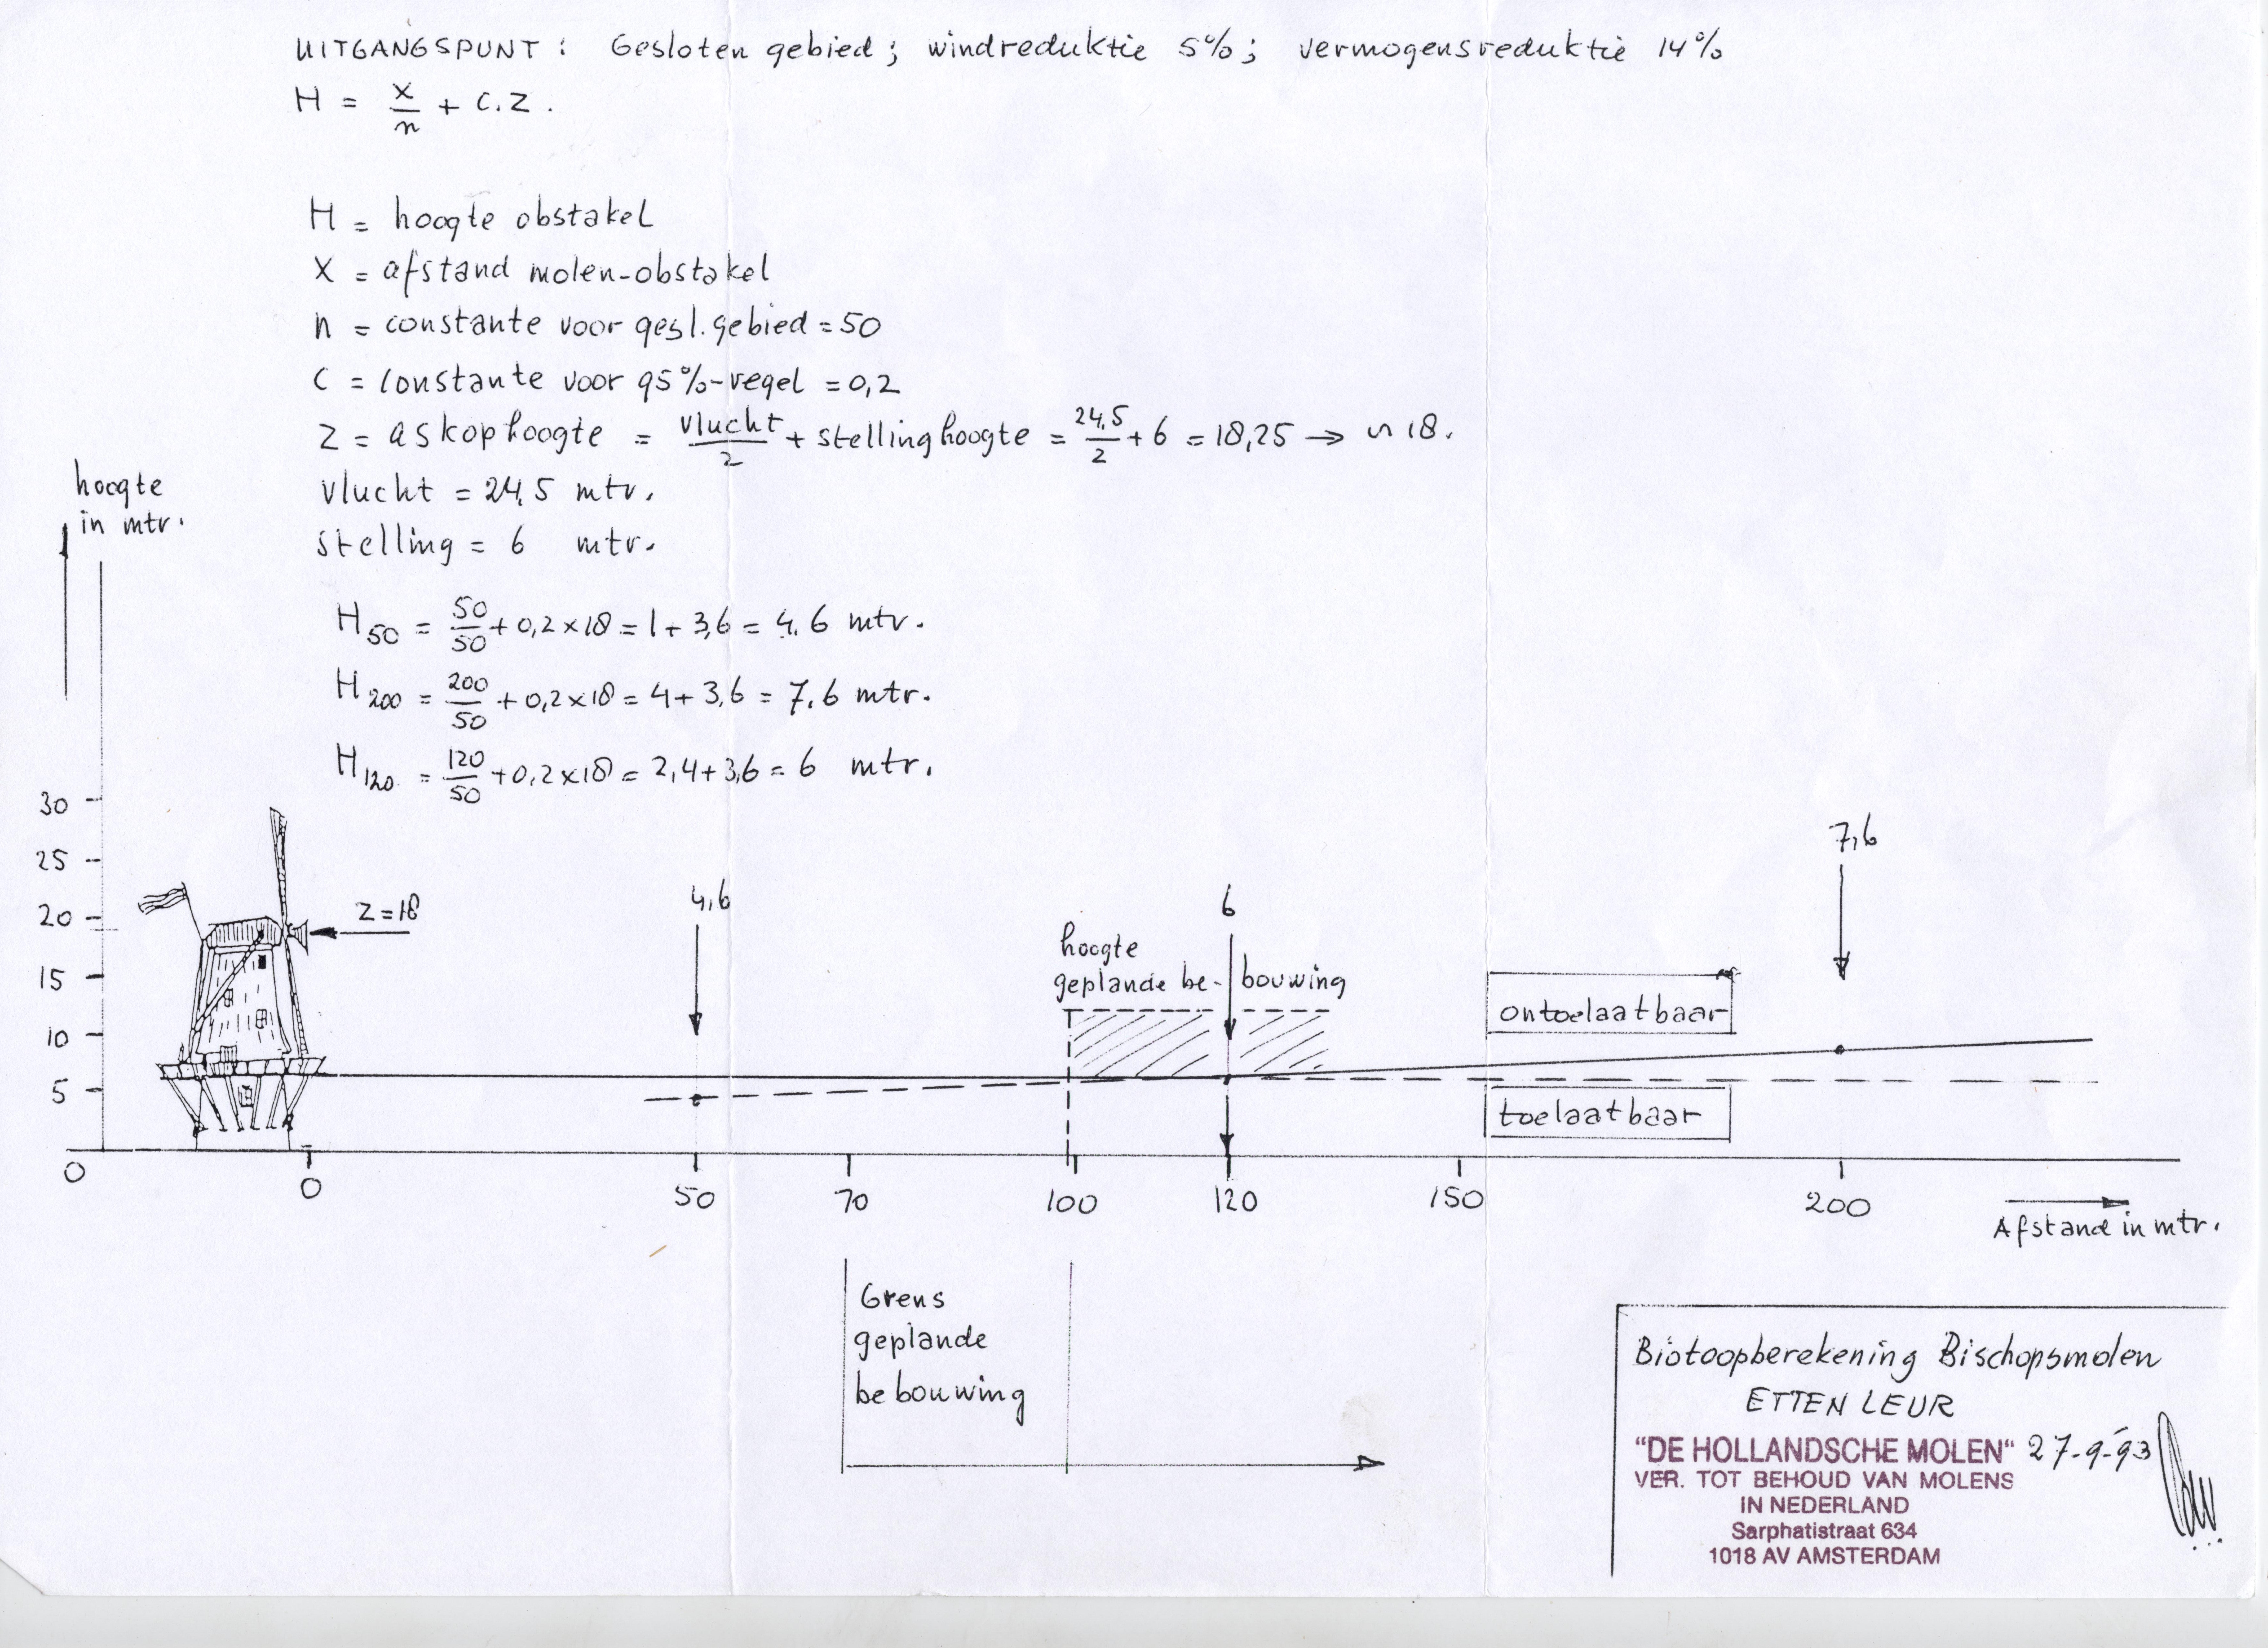 UITGANGSPUNT : Gesloten gebied ; windreduktie 5% ; vermogensreduktie 14%
H = x/n + c.z .
H = hoogte obstakel
X = afstand molen-obstakel
n = constante voor gesl. gebied = 50
C = constante voor 95%-regel = 0,2
Z = askophoogte = vlucht/2 + stellinghoogte = 24,5/2 + 6 = 18,25 → ∽ 18.
vlucht = 24,5 mtr.
stelling = 6 mtr.
hoogte
in mtr.
H50 = 50/50 + 0,2 x 18 = 1 + 3,6 = 4,6 mtr.
H200 = 200/50 + 0,2 x 18 = 4 + 3,6 = 7,6 mtr.
H120 = 120/50 + 0,2 x 18 = 2,4 + 3,6 = 6 mtr.
30
25
20
15
10
5
0
Z = 18
4,6
6
7,6
hoogte
geplande be- bouwing
ontoelaatbaar
toelaatbaar
0 50 70 100 120 150 200
Afstand in mtr.
Grens
geplande
bebouwing
Biotoopberekening Bischopsmolen
ETTEN LEUR
"DE HOLLANDSCHE MOLEN" 27-9-'93
VER. TOT BEHOUD VAN MOLENS
IN NEDERLAND
Sarphatistraat 634
1018 AV AMSTERDAM